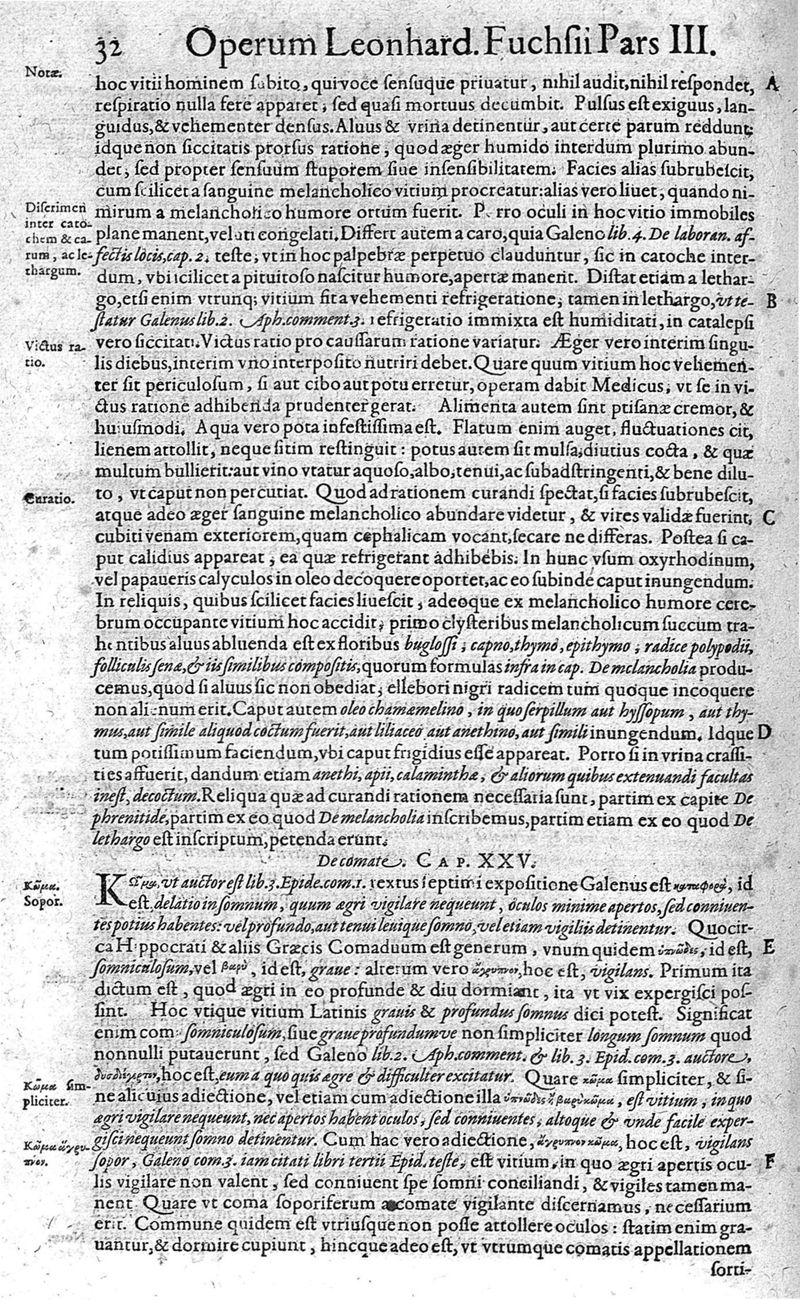 32 Operum Leonhard. Fuchſii Pars III.
Notæ.
hoc vitii hominem ſubito, qui voce ſenſuque priuatur, nihil audit, nihil reſpondet, A
reſpiratio nulla fere apparet, ſed quaſi mortuus decumbit. Pulſus eſt exiguus, lan-
guidus, & vehementer denſus. Aluus & vrina detinentur, aut certe parum reddunt;
idque non ſiccitatis prorſus ratione, quod æger humido interdum plurimo abun-
det, ſed propter ſenſuum ſtuporem ſiue inſenſibilitatem. Facies alias ſubrubeſcit,
cum ſcilicet a ſanguine melancholico vitium procreatur: alias vero liuet, quando ni-
Diſcrimen
inter cato-
chem & ca-
rum, ac le-
thargum.
mirum a melancholico humore ortum fuerit. Porro oculi in hoc vitio immobiles
plane manent, velut i congelati. Differt autem a caro, quia Galeno lib. 4. De laboran. af-
fectis locis, cap. 2. teſte, vt in hoc palpebræ perpetuo clauduntur, ſic in catoche inter-
dum, vbi ſcilicet a pituitoſo naſcitur humore, apertæ manent. Diſtat etiam a lethar-
go, etſi enim vtrunq; vitium fit a vehementi refrigeratione, tamen in lethargo, vt te- B
ſtatur Galenus lib. 2. Aph. comment. 3. refrigeratio immixta eſt humiditati, in catalepſi
Victus ra-
tio.
vero ſiccitati. Victus ratio pro cauſſarum ratione variatur. Æger vero interim ſingu-
lis diebus, interim vno interpoſito nutriri debet. Quare quum vitium hoc vehemen-
ter ſit periculoſum, ſi aut cibo aut potu erretur, operam dabit Medicus, vt ſe in vi-
ctus ratione adhibenda prudenter gerat. Alimenta autem ſint ptiſanæ cremor, &
huiuſmodi. Aqua vero pota infeſtiſſima eſt. Flatum enim auget, fluctuationes cit,
lienem attollit, neque ſitim reſtinguit: potus autem ſit mulſa, diutius cocta, & quæ
multum bullierit: aut vino vtatur aquoſo, albo, tenui, ac ſubadſtringenti, & bene dilu-
Curatio.
to, vt caput non percutiat. Quod ad rationem curandi ſpectat, ſi facies ſubrubeſcit,
atque adeo æger ſanguine melancholico abundare videtur, & vires validæ fuerint, C
cubiti venam exteriorem, quam cephalicam vocant, ſecare ne differas. Poſtea ſi ca-
put calidius appareat, ea quæ refrigerant adhibebis. In hunc vſum oxyrhodinum,
vel papaueris calyculos in oleo decoquere oportet, ac eo ſubinde caput inungendum.
In reliquis, quibus ſcilicet facies liueſcit, adeoque ex melancholico humore cere-
brum occupante vitium hoc accidit, primo clyſteribus melancholicum ſuccum tra-
hentibus aluus abluenda eſt ex floribus bugloſſi, capno, thymo, epithymo, radice polypodii,
folliculis ſenæ, & iis ſimilibus compoſitis, quorum formulas infra in cap. De melancholia produ-
cemus, quod ſi aluus ſic non obediat, ellebori nigri radicem tum quoque incoquere
non alienum erit. Caput autem oleo chamæmelino, in quo ſerpillum aut hyſſopum, aut thy-
mus, aut ſimile aliquod coctum fuerit, aut liliaceo aut anethino, aut ſimili inungendum. Idque D
tum potiſſimum faciendum, vbi caput frigidius eſſe appareat. Porro ſi in vrina craſſi-
ties affuerit, dandum etiam anethi, apii, calaminthæ, & aliorum quibus extenuandi facultas
ineſt, decoctum. Reliqua quæ ad curandi rationem neceſſaria ſunt, partim ex capite De
phrenitide, partim ex eo quod De melancholia inſcribemus, partim etiam ex eo quod De
lethargo eſt inſcriptum, petenda erunt.
De comate. CAP. XXV.
Κῶμα.
Sopor.
Κῶμα, vt auctor eſt lib. 3. Epide. com. 1. textus ſeptimi expoſitione Galenus eſt καταφορὰ, id
eſt, delatio in ſomnum, quum ægri vigilare nequeunt, oculos minime apertos, ſed conniuen-
tes potius habentes: vel profundo, aut tenui leuique ſomno, vel etiam vigiliis detinentur. Quocir-
ca Hippocrati & aliis Græcis Coma duum eſt generum, vnum quidem ὑπνῶδες, id eſt, E
ſomniculoſum, vel βαρὺ, id eſt, graue: alterum vero ἄγρυπνον, hoc eſt, vigilans. Primum ita
dictum eſt, quod ægri in eo profunde & diu dormiant, ita vt vix expergiſci poſ-
ſint. Hoc vtique vitium Latinis grauis & profundus ſomnus dici poteſt. Significat
enim coma ſomniculoſum, ſiue graue profundumve non ſimpliciter longum ſomnum quod
nonnulli putauerunt, ſed Galeno lib. 2. Aph. comment. & lib. 3. Epid. com. 3. auctore,
Κῶμα ſim-
pliciter.
δυσδιέγερτον, hoc eſt, eum a quo quis ægre & difficulter excitatur. Quare κῶμα ſimpliciter, & ſi-
ne alicuius adiectione, vel etiam cum adiectione illa ὑπνῶδες ἢ βαρὺ κῶμα, eſt vitium, in quo
ægri vigilare nequeunt, nec apertos habent oculos, ſed conniuentes, altoque & vnde facile exper-
Κῶμα ἄγρυ-
πνον.
giſci nequeunt ſomno detinentur. Cum hac vero adiectione, ἄγρυπνον κῶμα, hoc eſt, vigilans
ſopor, Galeno com. 3. iam citati libri tertii Epid. teſte, eſt vitium, in quo ægri apertis ocu- F
lis vigilare non valent, ſed conniuent ſpe ſomni conciliandi, & vigiles tamen ma-
nent. Quare vt coma ſoporiferum a comate vigilante diſcernamus, neceſſarium
erit. Commune quidem eſt vtriuſque non poſſe attollere oculos: ſtatim enim gra-
uantur, & dormire cupiunt, hincque adeo eſt, vt vtrumque comatis appellationem
ſorti-